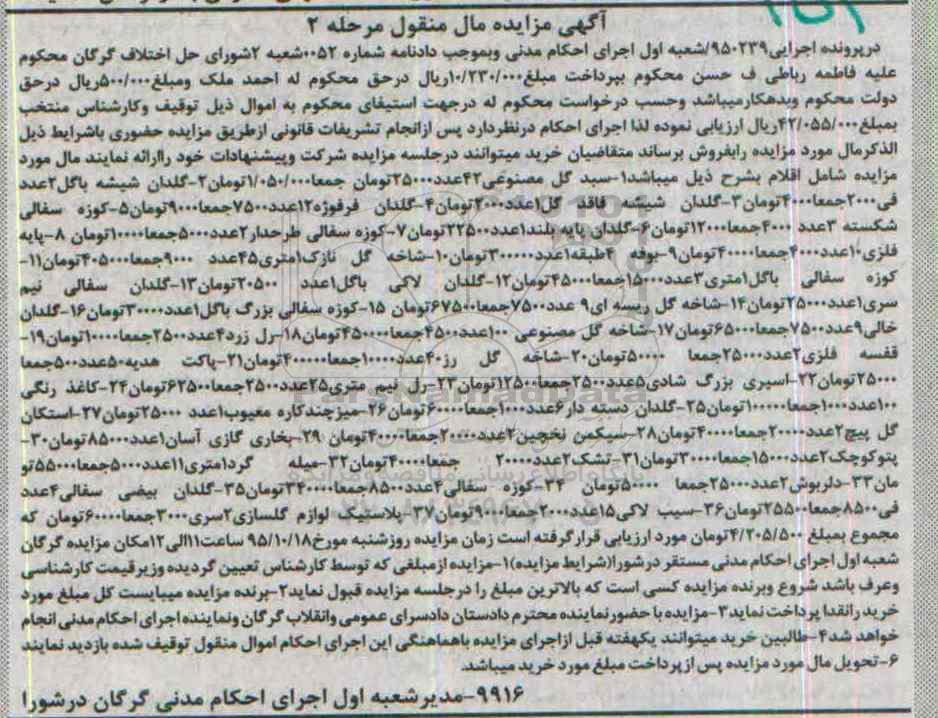 آگهی مزایده مال منقول مرحله ۲
درپرونده اجرایی۹۵۰۲۳۹/شعبه اول اجرای احکام مدنی وبموجب دادنامه شماره ۰۰۵۲شعبه ۲شورای حل اختلاف گرگان محکوم
علیه فاطمه رباطی ف حسن محکوم بپرداخت مبلغ۱۰/۲۳۰/۰۰۰ریال درحق محکوم له احمد ملک ومبلغ۵۰۰/۰۰۰ریال درحق
دولت محکوم وبدهکارمیباشد وحسب درخواست محکوم له درجهت استیفای محکوم به اموال ذیل توقیف وکارشناس منتخب
بمبلغ۴۲/۰۵۵/۰۰۰ریال ارزیابی نموده لذا اجرای احکام درنظردارد پس ازانجام تشریفات قانونی ازطریق مزایده حضوری باشرایط ذیل
الذکرمال مورد مزایده رابفروش برساند متقاضیان خرید میتوانند درجلسه مزایده شرکت وپیشنهادات خود راارائه نمایند مال مورد
مزایده شامل اقلام بشرح ذیل میباشد۱-سبد گل مصنوعی۴۲عدد۲۵۰۰۰تومان جمعا۱/۰۵۰/۰۰۰تومان۲-گلدان شیشه باگل۲عدد
فی۲۰۰۰جمعا۴۰۰۰تومان۳-گلدان شیشه فاقد گل۱عدد۲۰۰۰تومان۴-گلدان فرفوژه۱۲عدد۷۵۰۰جمعا۹۰۰۰۰تومان۵-کوزه سفالی
شکسته ۳عدد ۴۰۰۰جمعا۱۲۰۰۰تومان۶-گلدان پایه بلند۱عدد۲۲۵۰۰تومان۷-کوزه سفالی طرحدار۲عدد۵۰۰۰جمعا۱۰۰۰۰تومان ۸-پایه
فلزی۱۰عدد۴۰۰۰جمعا۴۰۰۰۰تومان۹-بوفه ۴طبقه۱عدد۳۰۰۰۰۰تومان۱۰-شاخه گل نازک۱متری۴۵عدد ۹۰۰۰جمعا۴۰۵۰۰۰تومان۱۱-
کوزه سفالی باگل۱متری۳عدد۱۵۰۰۰جمعا۴۵۰۰۰تومان۱۲-گلدان لاکی باگل۱عدد ۲۰۵۰۰تومان۱۳-گلدان سفالی نیم
سری۱عدد۲۵۰۰۰تومان۱۴-شاخه گل ریسه ای۹ عدد۷۵۰۰جمعا۶۷۵۰۰تومان ۱۵-کوزه سفالی بزرگ باگل۱عدد۳۰۰۰۰تومان۱۶-گلدان
خالی۹عدد۷۵۰۰جمعا۶۵۰۰۰تومان۱۷-شاخه گل مصنوعی ۱۰۰عدد۴۵۰۰جمعا۴۵۰۰۰۰تومان۱۸-رل زرد۴عدد۲۵۰۰جمعا۱۰۰۰۰تومان۱۹-
قفسه فلزی۲عدد۲۵۰۰۰جمعا ۵۰۰۰۰تومان۲۰-شاخه گل رز۴۰عدد۱۰۰۰۰جمعا۴۰۰۰۰۰تومان۲۱-پاکت هدیه۵۰عدد۵۰۰جمعا
۲۵۰۰۰تومان۲۲-اسپری بزرگ شادی۵عدد۲۵۰۰جمعا۱۲۵۰۰تومان۲۳-رل نیم متری۲۵عدد۲۵۰۰جمعا۶۲۵۰۰تومان۲۴-کاغذ رنگی
۱۰۰عدد۱۰۰۰جمعا۱۰۰۰۰۰تومان۲۵-گلدان دسته دار۶عدد۱۰۰۰جمعا۶۰۰۰تومان۲۶-میزچندکاره معیوب۱عدد ۲۵۰۰۰تومان۲۷-استکان
گل پیچ۲عدد۲۰۰۰۰جمعا۴۰۰۰۰تومان۲۸-سیکمن نخچین۲عدد۲۰۰۰۰جمعا۴۰۰۰۰تومان ۲۹-بخاری گازی آسان۱عدد۸۵۰۰۰تومان۳۰-
پتوکوچک۲عدد۱۵۰۰۰جمعا۳۰۰۰۰تومان۳۱-تشک۲عدد۲۰۰۰۰ جمعا۴۰۰۰۰تومان۳۲-میله گرد۱متری۱۱عدد۵۰۰۰جمعا۵۵۰۰۰تو
مان۳۳-دلربوش۲عدد۲۵۰۰۰جمعا ۵۰۰۰۰تومان ۳۴-کوزه سفالی۴عدد۸۵۰۰جمعا۳۴۰۰۰تومان۳۵-گلدان بیضی سفالی۴عدد
فی۸۵۰۰جمعا۲۵۵۰۰تومان۳۶-سیب لاکی۱۵عدد۲۰۰۰جمعا۹۰۰۰تومان۳۷-پلاستیک لوازم گلسازی۲سری۳۰۰۰جمعا۶۰۰۰۰تومان که
مجموع بمبلغ ۴/۲۰۵/۵۰۰تومان مورد ارزیابی قرارگرفته است زمان مزایده روزشنبه مورخ۹۵/۱۰/۱۸ ساعت۱۱الی۱۲مکان مزایده گرگان
شعبه اول اجرای احکام مدنی مستقر درشورا(شرایط مزایده)۱-مزایده ازمبلغی که توسط کارشناس تعیین گردیده وزیرقیمت کارشناسی
وعرف باشد شروع وبرنده مزایده کسی است که بالاترین مبلغ را درجلسه مزایده قبول نماید۲-برنده مزایده میبایست کل مبلغ مورد
خرید رانقدا پرداخت نماید۳-مزایده با حضورنماینده محترم دادستان دادسرای عمومی وانقلاب گرگان ونماینده اجرای احکام مدنی انجام
خواهد شد۴-طالبین خرید میتوانند یکهفته قبل ازاجرای مزایده باهماهنگی این اجرای احکام اموال منقول توقیف شده بازدید نمایند
۶-تحویل مال مورد مزایده پس از پرداخت مبلغ مورد خرید میباشد.
۹۹۱۶-مدیرشعبه اول اجرای احکام مدنی گرگان درشورا